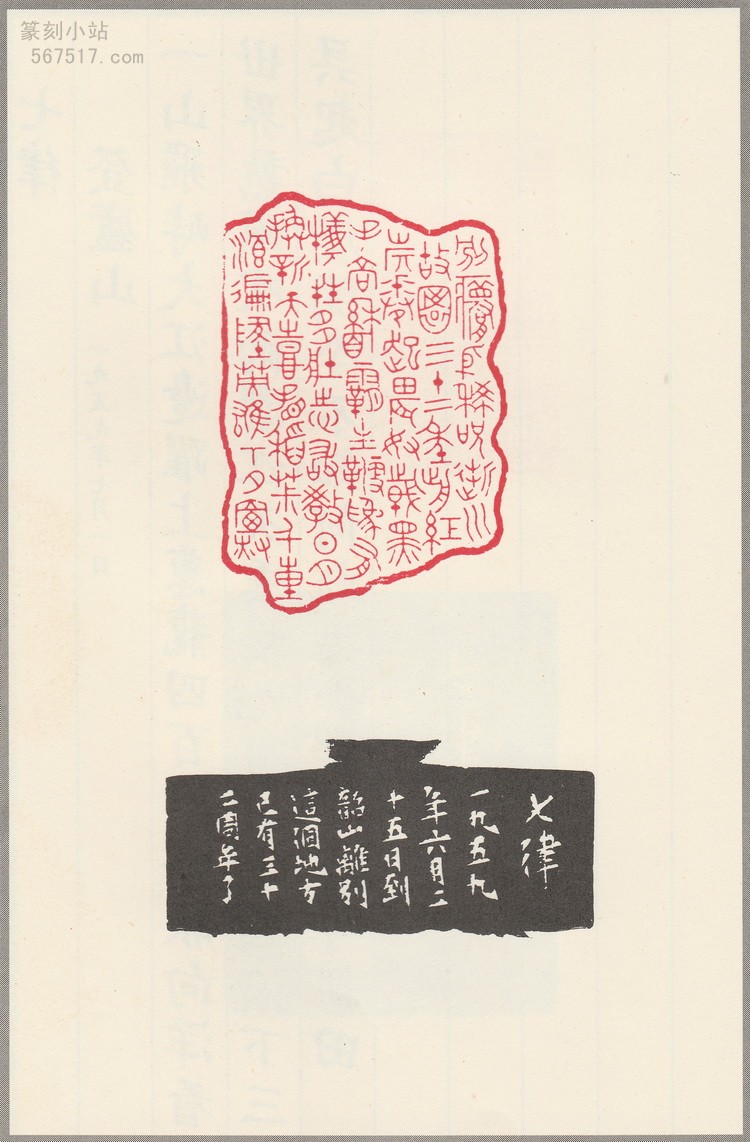 篆刻小站
567517.com
别夢依稀咒逝川
故園三十二年前紅
旗卷起農奴戟黑
手高縣霸主鞭為有
犧牲多壯志敢教日月
換新天喜看稻菽千重
浪遍地英雄下夕煙
七律
一九五九
年六月二
十五日到
韶山離别
這個地方
已有三十
二周年了